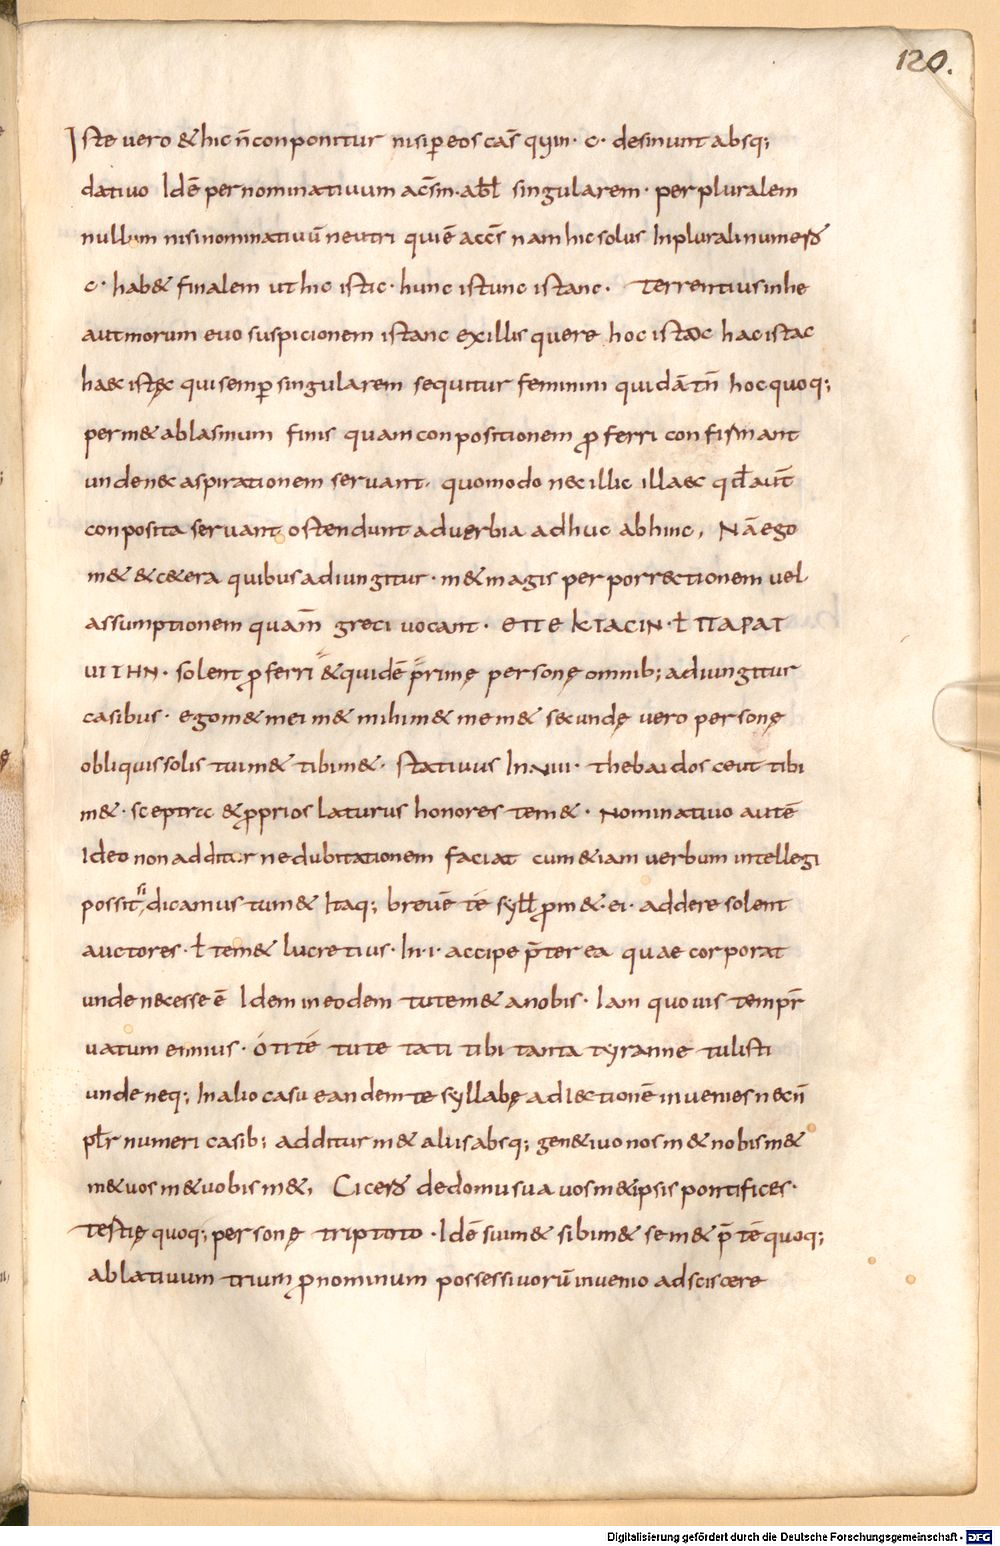 120.
Iste vero & hic n̄ conponitur nisi ꝑ eos cas̄ qui in · c · desinunt absq;
dativo Idē per nominativum acs̄m · abl̄ singularem · per pluralem
nullum nisi nominativū neutri qui ē accs̄ nam hic solus In plurali numero
c · hab& finalem ut hic istic · hunc istunc istanc · Terrentius in he
autmorum euo suspicionem istanc ex illis quere hoc istoc hac istac
haec istęc qui semꝑ singularem sequitur feminini quidā tn̄ hoc quoq;
per m&ablasmum finis quam conpositionem ꝓferri confirmant
unde nec aspirationem servant · quomodo nec illic illaec qd̄ aut̄
conposita servant ostendunt adverbia adhuc abhinc, Nā ego
m& & c&era quibus adiungitur · m& magis per porrectionem vel
assumptionem quam̄ greci vocant · ЄΠΕΚΤΑCΙΝ · ł ΠΑΡΑΓ
ѠΓΗΝ · solent ꝓferri & quidē primę personę omnib; adiungitur
casibus · egom& meim& mihim& mem& secundę vero personę
obliquis solis tuim& tibim& · Stativus In .viii · thebaidos ceut tibi
m& · sceptra & ꝓprios laturus honores tem& · Nominativo autē
Ideo non additur ne dubitationem faciat cum &iam verbum intellegi
possit si dicamus tum& Itaq; brevē te syll̄ ꝓ m& · ei · addere solent
auctores · ł tem& lucretius · In · i · accipe p̄ter ea quae corporat
unde necesse ē Idem in eodem tutem& a nobis · Iam quovis tempr̄
vatum ennius · O tite tute tati tibi tanta tyranne tulisti
unde neq; In alio casu eandem te syllabę adIectionē invenies nec n̄
pl̄r numeri casib; additur m& aliis absq; gen&ivo nosm& nobism&
m& vosm& vobism&, Cicero de domu sua vosm& ipsis pontifices ·
testię quoq; personę triptoto · Idē suim& sibim& sem& p̄ tē quoq;
ablativum trium ꝓnominum possessivorū invenio adsciscere